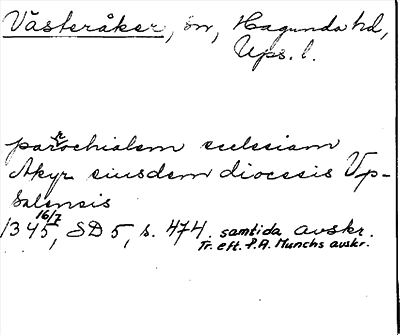 Västeråker, sn, Hagunda hd,
Ups. l.
parrochialem ecclesiam
Akyr eiusdem diocesis Vp-
salensis
1345 16/7, SD 5, s. 474. samtida avskr.
Tr. eft. P.A. Munchs avskr.